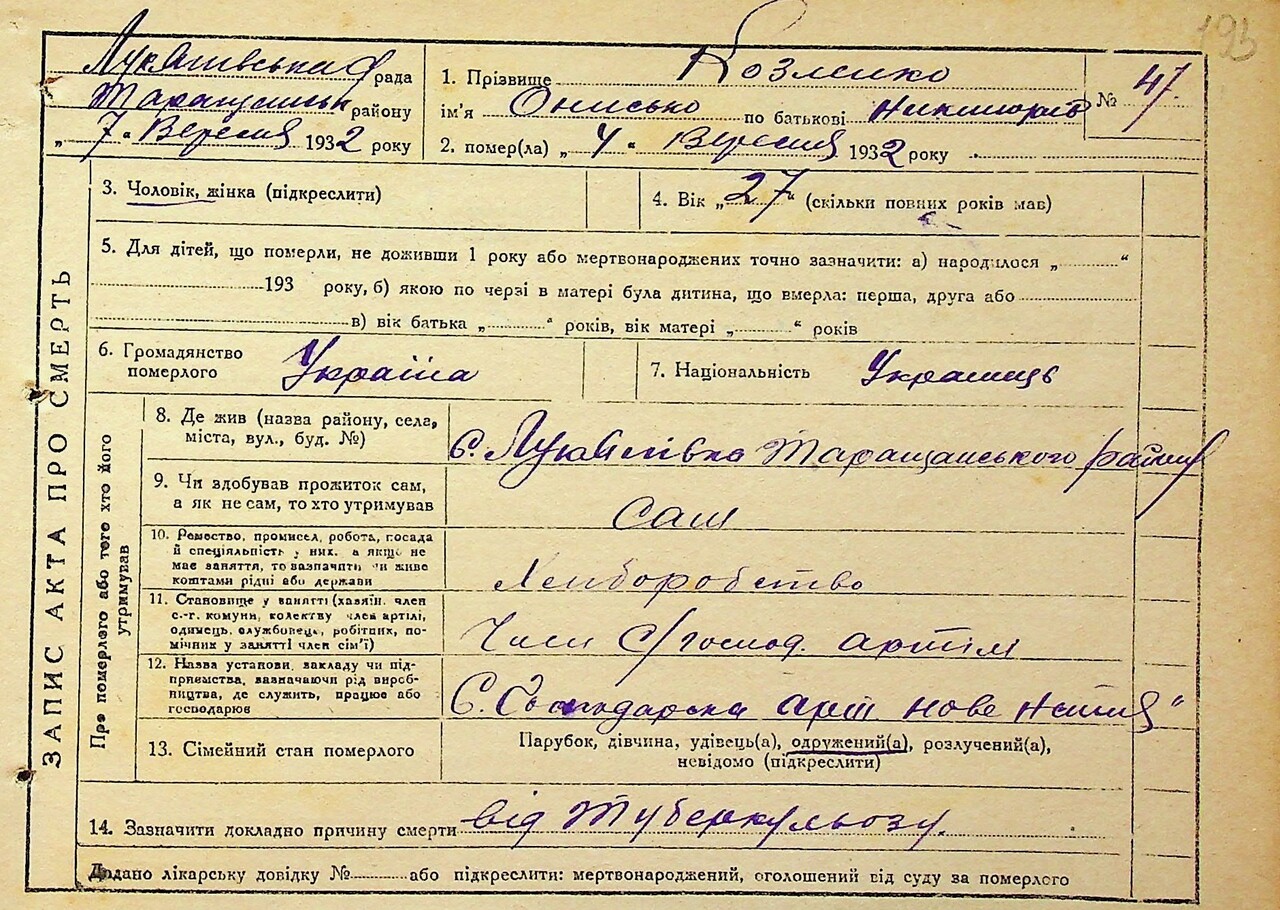 193
Лукашівська рада
Таращанськ району
„7“ Вересня 1932 року
1. Прізвище Козленко
ім'я Онисько по батькові
2. помер(ла) „4“ Вересня 1932 року
№ 47.
ЗАПИС АКТА ПРО СМЕРТЬ
3. Чоловік, жінка (підкреслити)
4. Вік „27“ (скільки повних років мав)
5. Для дітей, що померли, не доживши 1 року або мертвонароджених точно зазначити: а) народилося „ “
193 року, б) якою по черзі в матері була дитина, що вмерла: перша, друга або
в) вік батька „ “ років, вік матері „ “ років
6. Громадянство
померлого
Україна
7. Національність Українець
Про померлого або того хто його
утримував
8. Де жив (назва району, села,
міста, вул., буд. №)
с. Лукашівка Таращанського району
9. Чи здобував прожиток сам,
а як не сам, то хто утримував
Сам
10. Ремество, промисел, робота, посада
й спеціяльність у них, а якщо не
має заняття, то зазначить чи живе
коштами рідні або держави
Хлиборобство
11. Становище у занятті (хазяїн, член
с.-г. комуни, колективу член артілі,
одинець, службовець, робітник, по-
мічник у занятті член сім'ї)
Член с/господ. артілі
12. Назва установи, закладу чи під-
приємства, зазначаючи рід вироб-
ництва, де служить, працює або
господарює
С. Господарска арт. нове життя“
13. Сімейний стан померлого
Парубок, дівчина, удівець(а), одружений(а), розлучений(а),
невідомо (підкреслити)
14. Зазначити докладно причину смерти від Туберкульозу.
Додано лікарську довідку № або підкреслити: мертвонароджений, оголошений від суду за померлого